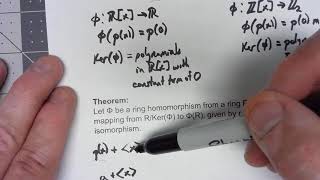 Φ: ℝ[x] → ℝ
Φ(p(x)) = p(0)
Ker(Φ) = polynomials
in ℝ[x] with
constant term of 0
Φ: ℤ[x] → ℤ₂
Φ(p(x)) =
Ker(Φ) =
in
Theorem:
Let Φ be a ring homomorphism from a ring
mapping from R/Ker(Φ) to Φ(R), given by
isomorphism.
p(x) + <x>
a + <x>